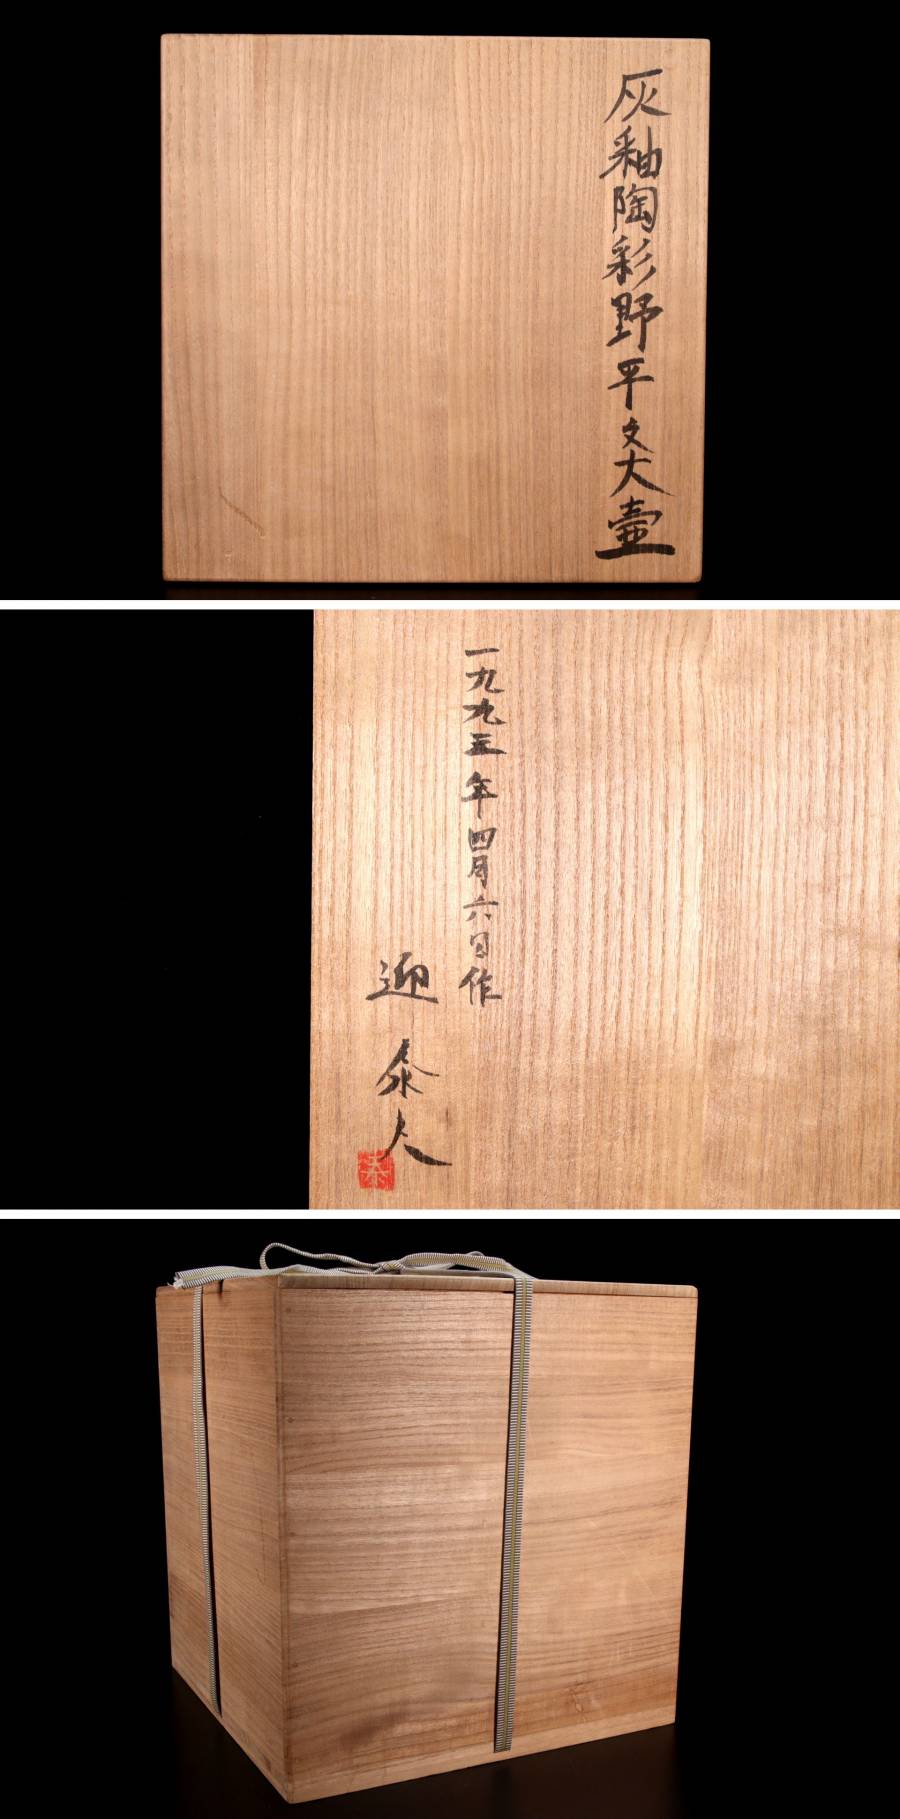 灰釉陶彩野平文大壷
一九九五年四月六日作
迎
泰夫
泰